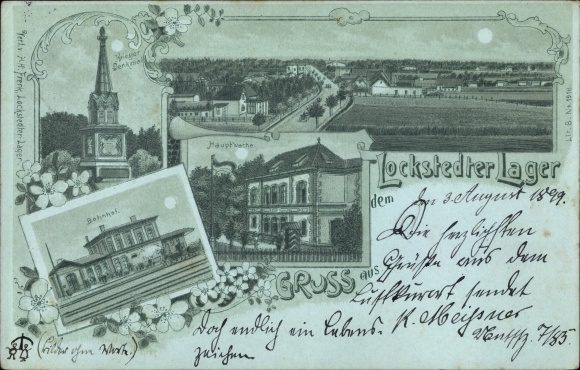 Krieger
Denkmal
Verl. v. H.R. Frenk, Lockstedter-Lager.
Litr. B. No.
Hauptwache.
Bahnhof.
GRUSS aus
dem
Lockstedter Lager
Den 3. August 1899.
Die herzlichsten
Grüße aus dem
Luftkurort sendet
K. Meißner
7/85
Doch endlich ein Lebens-
zeichen
(Bilder ohne Worte.)